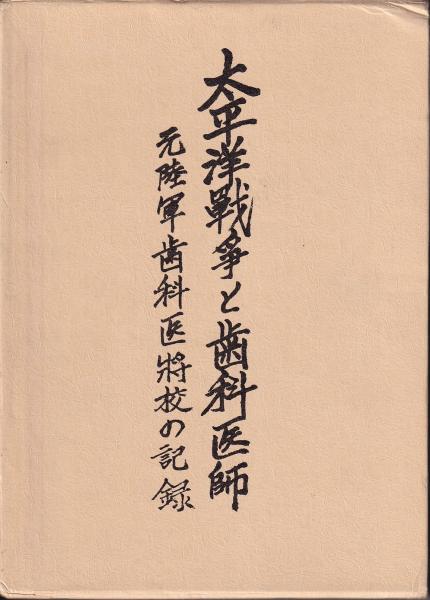 太平洋戦争と歯科医師
元陸軍歯科医将校の記録